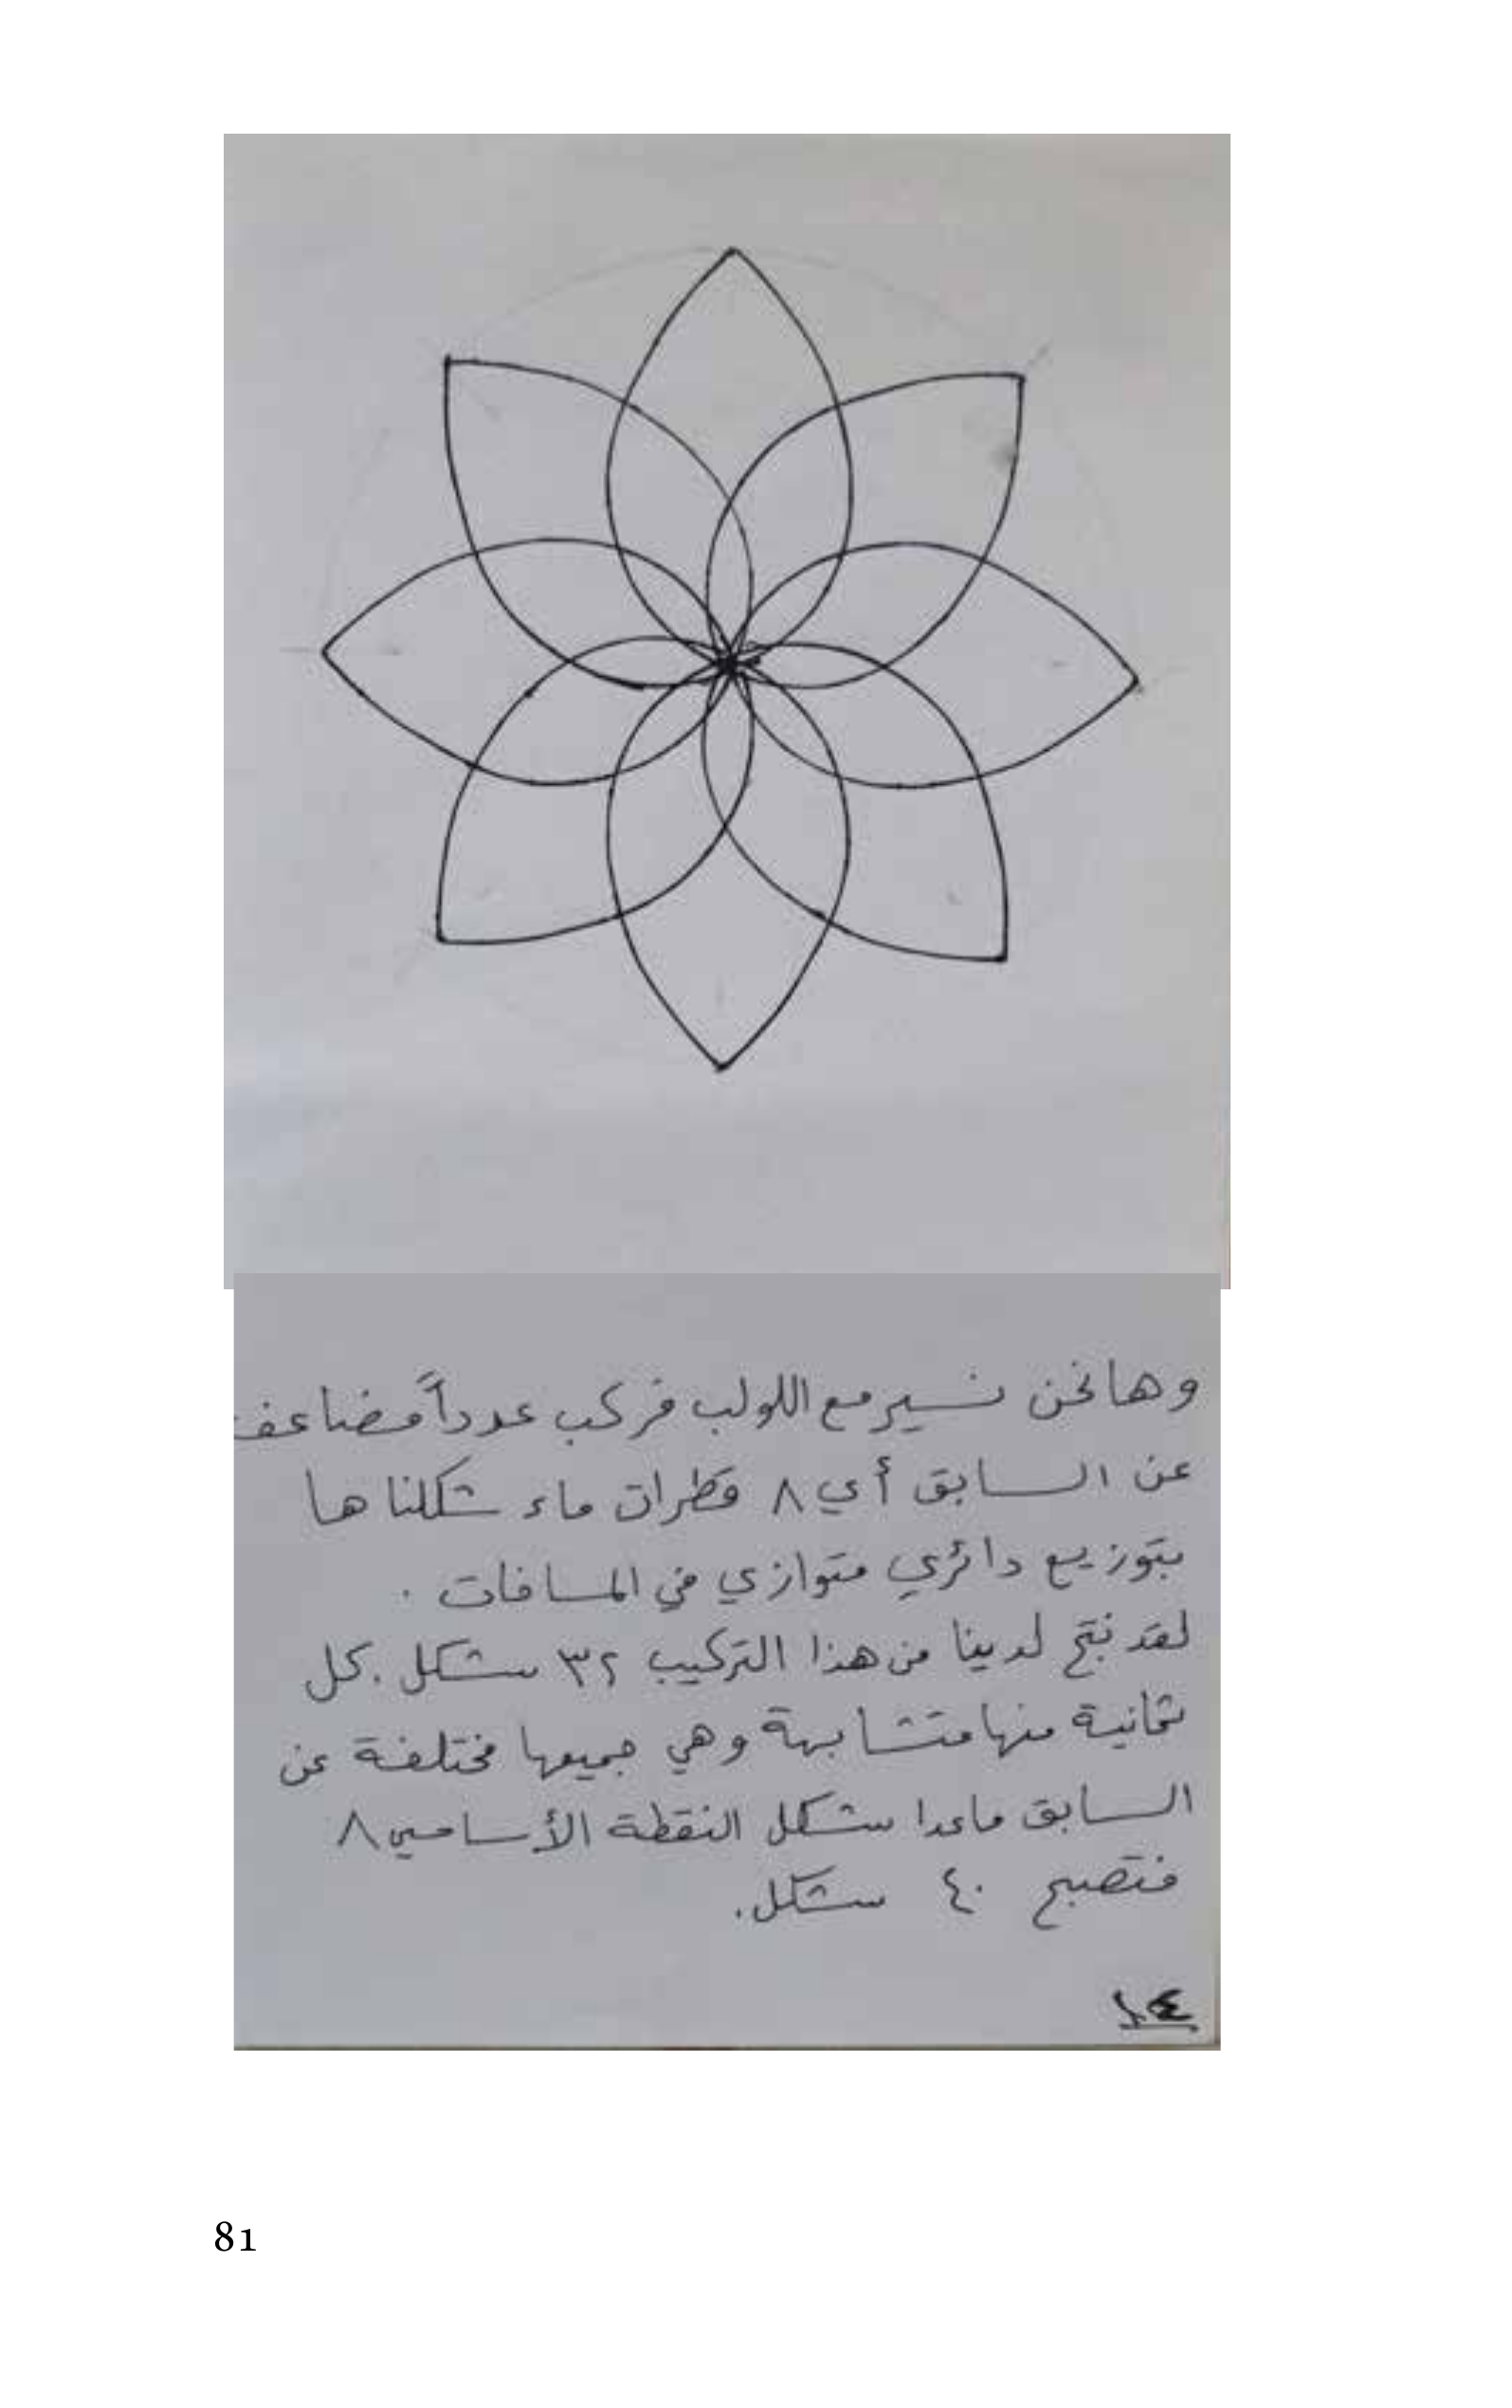 وها نحن نسير مع اللولب فنركب عدداً مضاعف
عن السابق أي ٨ قطرات ماء شكلناها
بتوزيع دائري متوازي في المسافات .
لقد نتج لدينا من هذا التركيب ٣٢ شكل . كل
ثمانية منها متشابهة وهي جميعها مختلفة عن
السابق ماعدا شكل النقطة الأساسي ٨
فتصبح ٤٠ شكل .
81